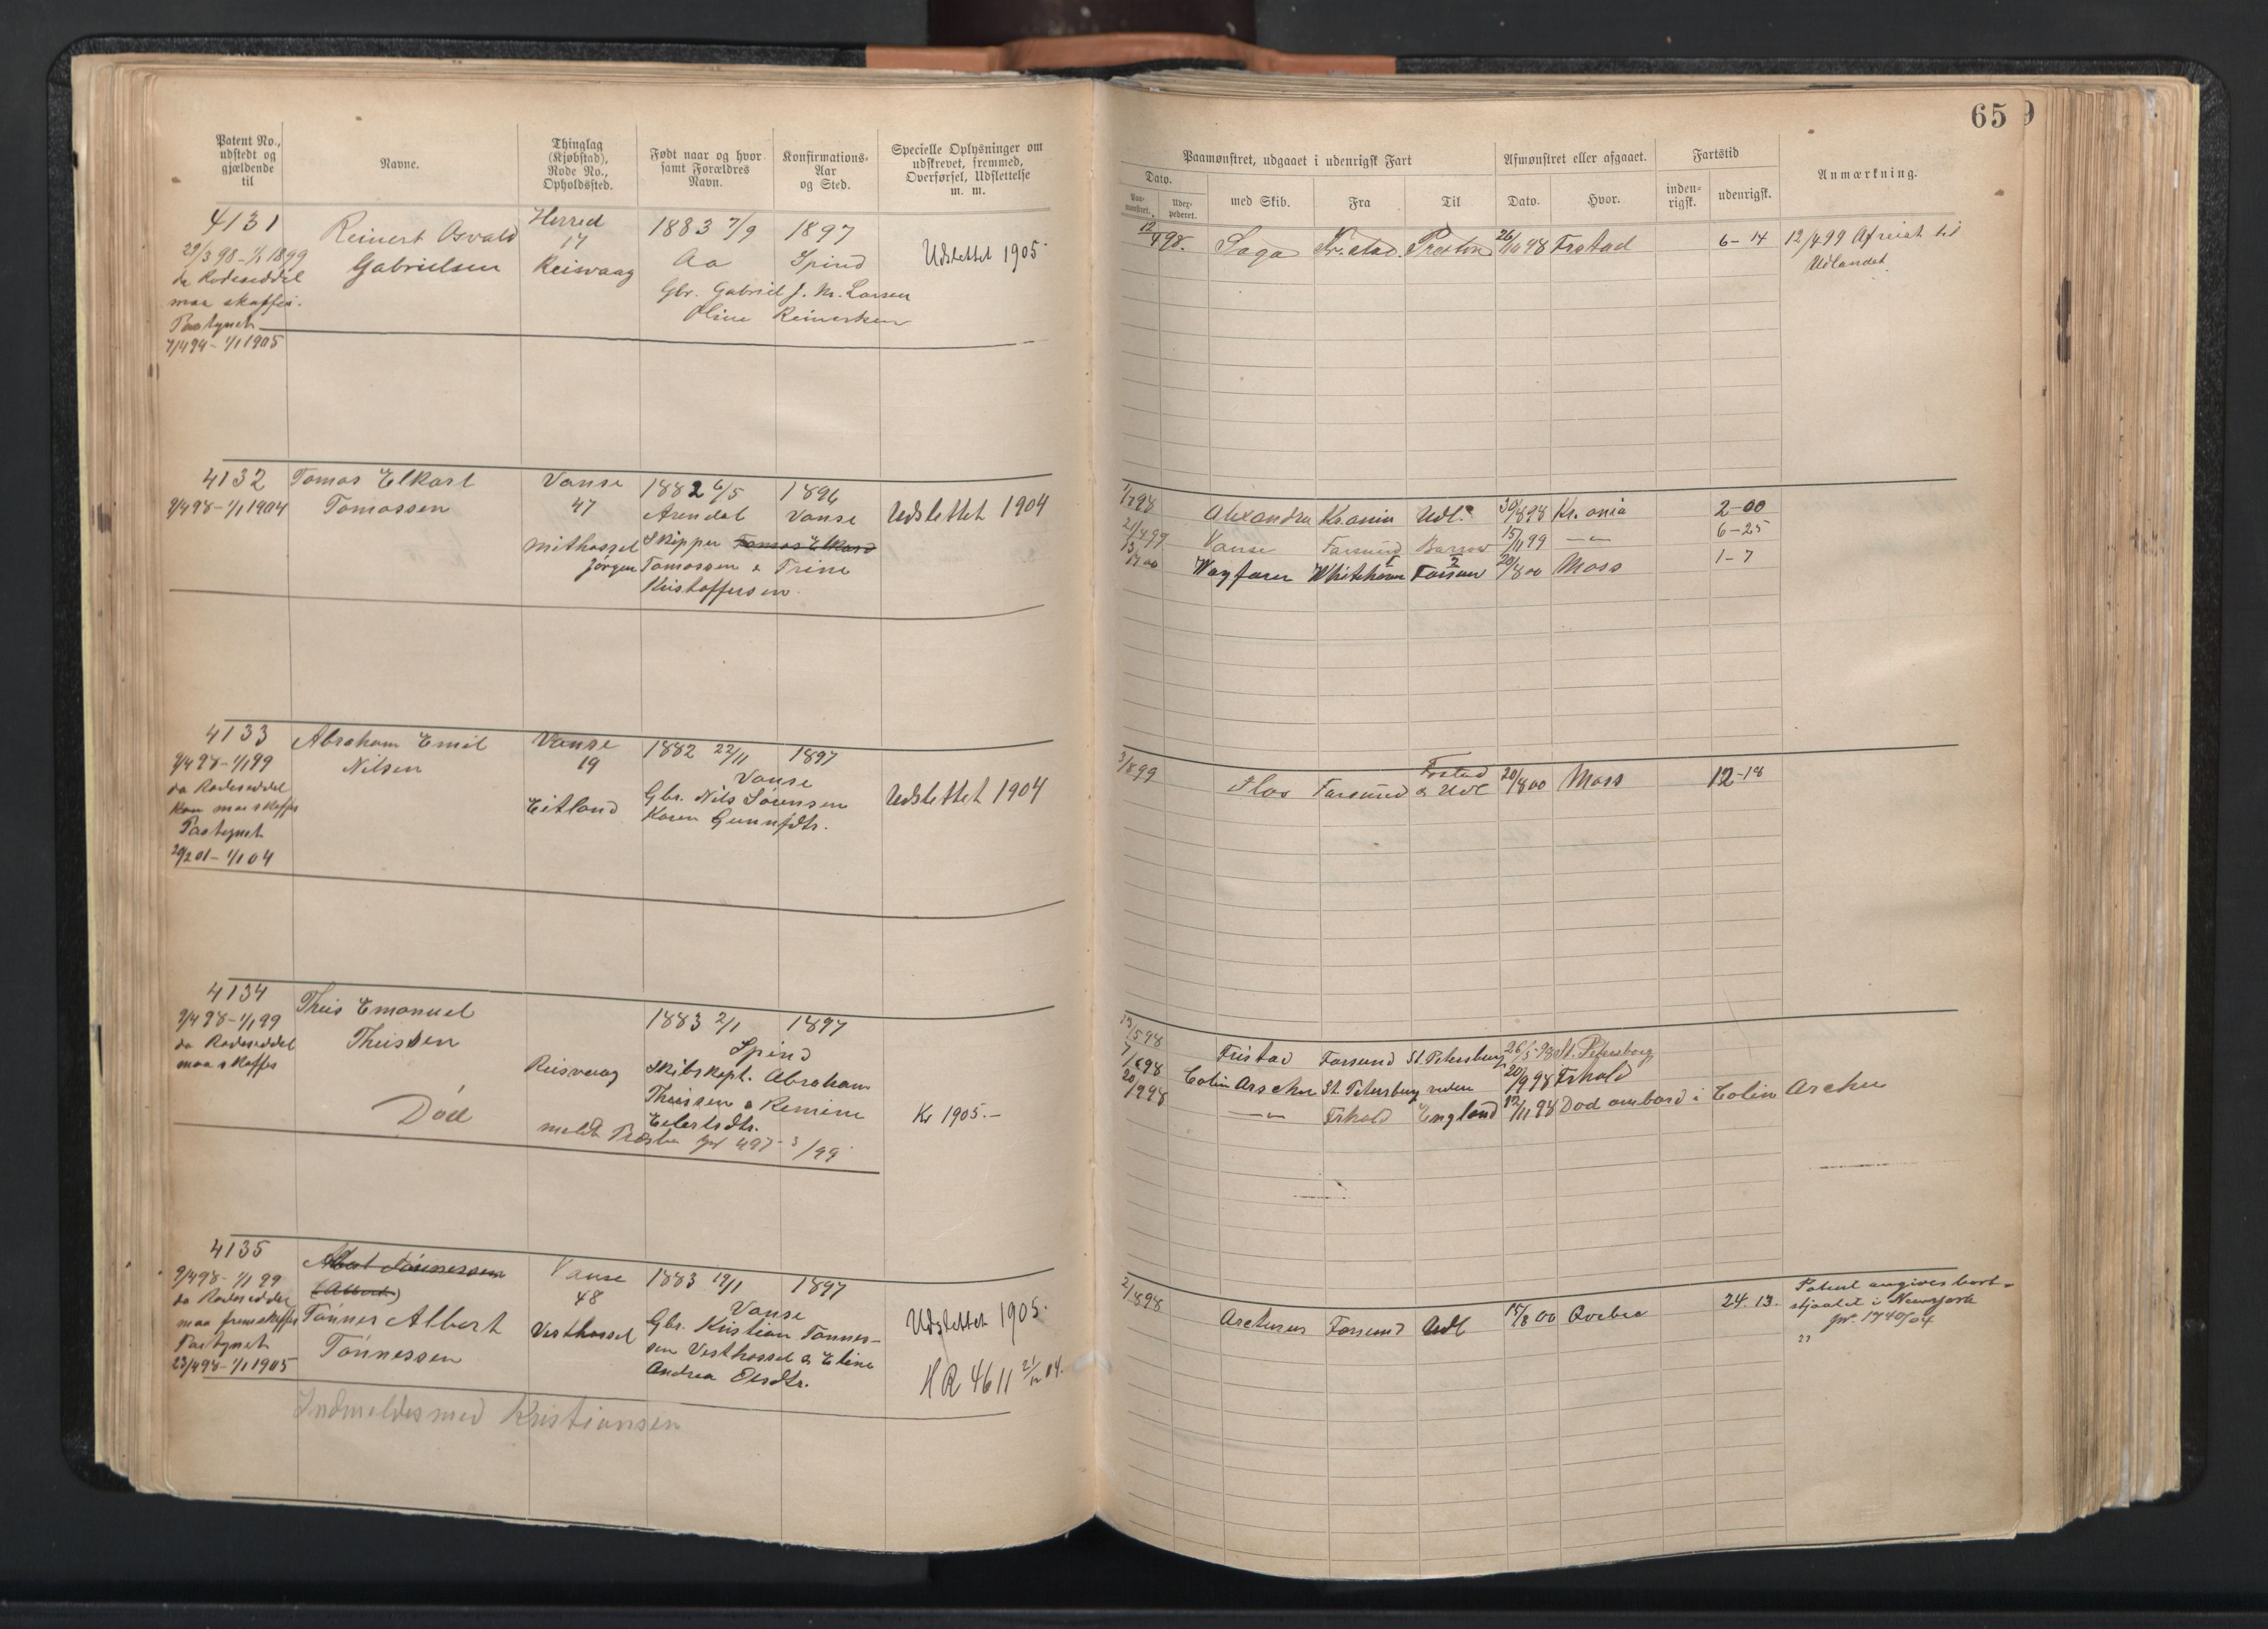 Patent No., udstedt og gjældende til
Navne.
Thinglag (Kjøbstad), Rode No., Opholdssted.
Født naar og hvor samt Forældres Navn.
Konfirmations-Aar og Sted.
Specielle Oplysninger om udskrevet, fremmed, Overførsel, Udslettelse m. m.
4131
29/3 98 - 1/1 1899
da Rodeseddel
maa skaffes.
Pategnet
7/4 99 - 1/1 1905
Reinert Osvald
Gabrielsen
Herred
17
Reisvaag
1883 7/9 1897
Aa Spind
Gbr. Gabriel J. M. Larsen
Oline Reinertsen
Udslettet 1905
4132
9/4 98 - 1/1 1904
Tomas Elkart
Tomassen
Vanse
47
Mithassel
1882 6/5 1896
Arendal Vanse
Skipper Tomas Elkard
Jörgen Tomassen & Trine
Kristoffersen
Udslettet 1904
4133
9/4 98 - 1/1 99
da Rodeseddel
kan maa skaffes
Paategnet
20/2 01 - 1/1 04
Abraham Emil
Nilsen
Vanse
19
Eitland
1882 22/11 1897
Vanse
Gbr. Nils Sörensen
Karen Gunnfdtr.
Udslettet 1904
4134
9/4 98 - 1/1 99
da Rodeseddel
maa skaffes
Theis Emanuel
Theissen
Död
Reisvaag
1883 2/1 1897
Spind
Skibskapt. Abraham
Theissen & Remine
Eilertsdtr.
meldt Præsten 497 - 3/99
Kr 1905.-
4135
9/4 98 - 1/1 99
da Rodeseddel
maa fremskaffes
Paategnet
23/4 98 - 1/1 1905
Albert Tönnessen
(Albert)
Tönnes Albert
Tönnessen
Vanse
48
Vesthassel
1883 19/1 1897
Vanse
Gbr. Kristian Tönnes-
sen Vesthassel & Eline
Andrea Olsdtr.
Udslettet 1905.
HR 4611 21/12 04.
Indmeldes med Kristiansen
659
Paamønstret, udgaaet i udenrigsk Fart
Afmønstret eller afgaaet.
Fartstid
Anmærkning.
Dato.
Paa-mønstret.
Udex-pederet.
med Skib.
Fra
Til
Dato.
Hvor.
inden-rigsk.
udenrigsk.
12/4 98. Saga Fr.stad. Preston 26/10 98 Frstad 6-14 12/4 99 Afreist til
Udlandet
1/7 98 Alexandra Kr.ania Udl. 30/8 98 Kr.ania 2-00
21/4 99 Vanse Farsund Barrow 15/11 99 —"— 6-25
13/7 00 Wayfarer Whitehaven Farsund 20/8 00 Moss 1-7
3/8 99 Flos Farsund Frstad & Udl 20/8 00 Moss 12-18
13/5 98 Fristad Farsund St. Petersburg 26/5 98 St. Petersborg
7/6 98 Colin Archer St. Petersburg 20/9 98 Frhald
20/9 98 —"— Frhald England 12/11 98 Död ombord i Colin Archer
2/8 98 Arcturus Farsund Udl 15/8 00 Qvebec 24. 13.
Patent angives bort-
stjaalet i Newyork
pr. 1740/04